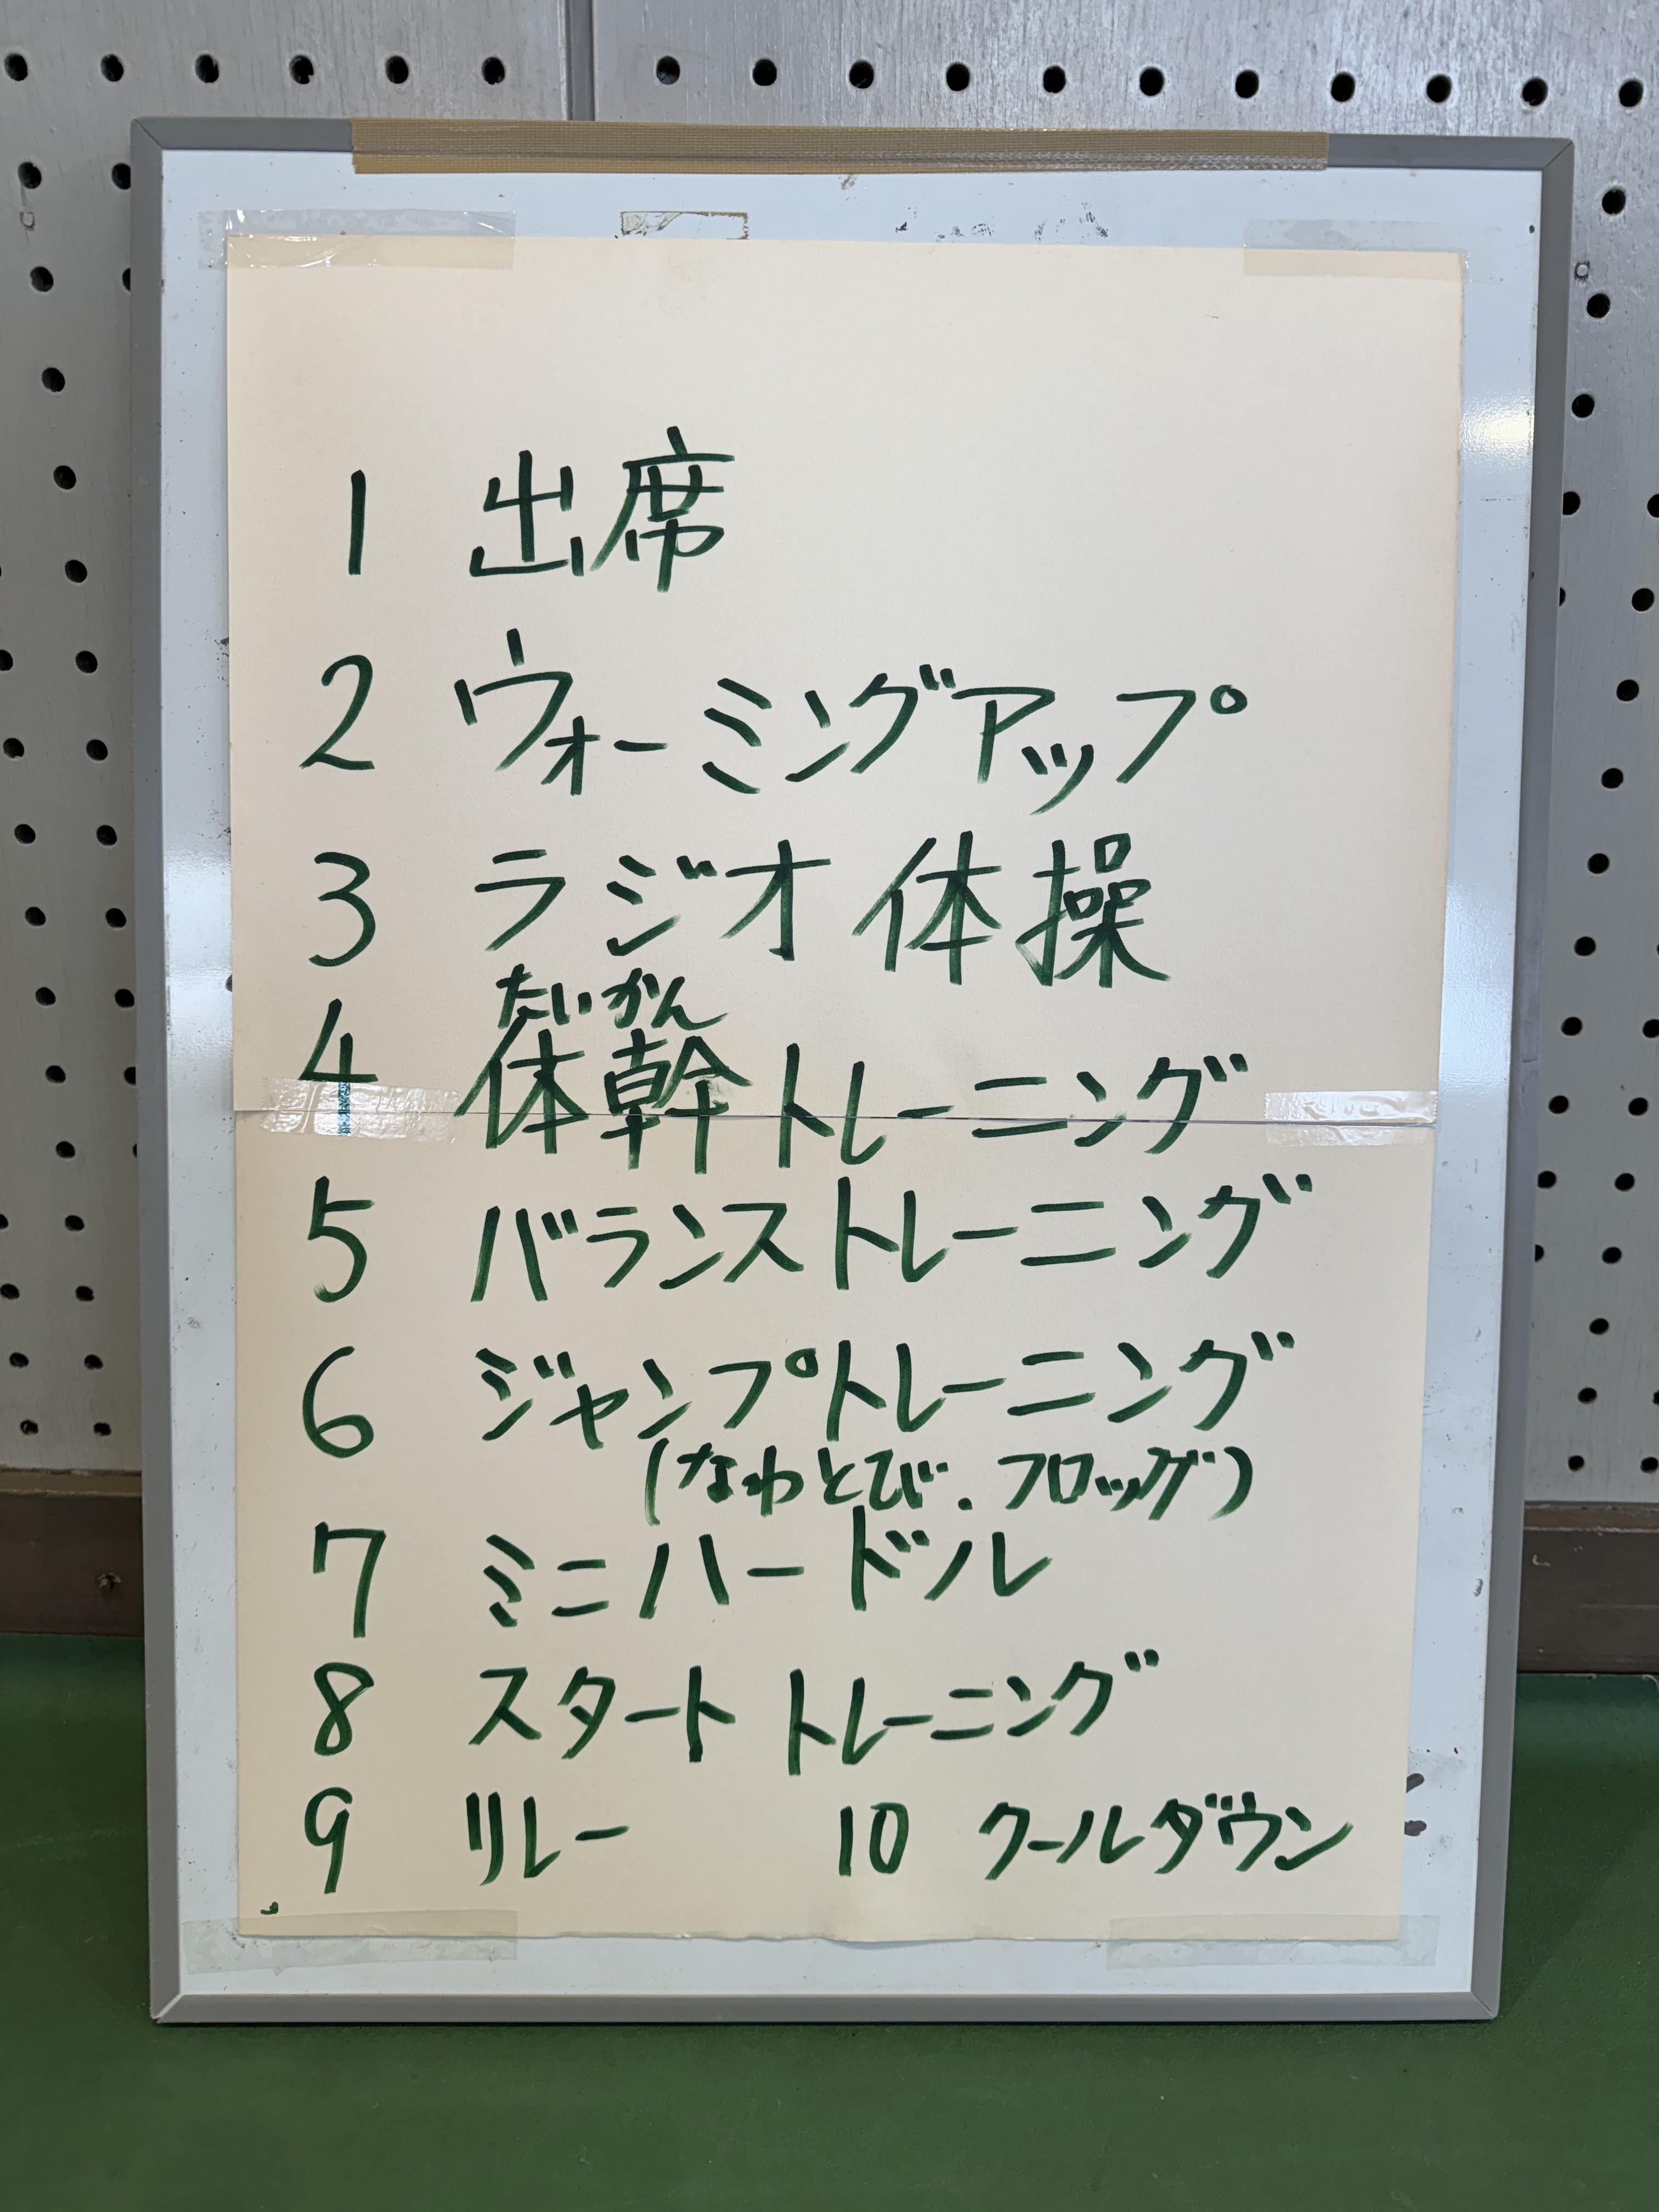 1 出席
2 ウォーミングアップ
3 ラジオ体操
たいかん
4 体幹トレーニング
5 バランストレーニング
6 ジャンプトレーニング
(なわとび.フロッグ)
7 ミニハードル
8 スタートトレーニング
9 リレー 10 クールダウン